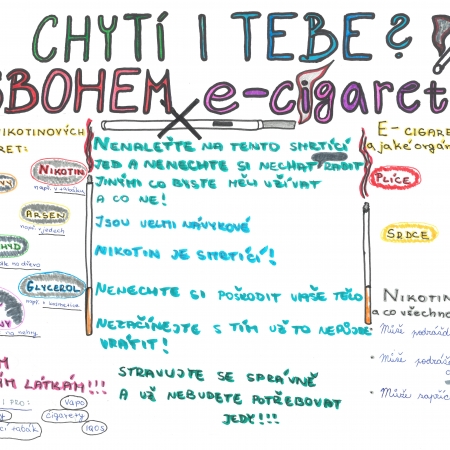 CHYTÍ I TEBE?
SBOHEM e-cigaret
NIKOTINOVÝCH
RET:
NIKOTIN
např. v tabáku
ARSEN
např. v jedech
HYD
GLYCEROL
např. v kosmetice
NY
na nehty
M
ÝM LÁTKÁM!!!
I PRO:
VAPO
cigarety
cí tabák
IQOS
NENALEŤTE NA TENTO SMRTÍCÍ
JED A NENECHTE SI NECHAT RADIT
JINÝMI CO BYSTE MĚLI UŽÍVAT
A CO NE!
JSOU VELMI NÁVYKOVÉ
NIKOTIN JE SMRTÍCÍ!
NENECHTE SI POŠKODIT VAŠE TĚLO
NEZAČÍNEJTE S TÍM UŽ TO NEPŮJDE
VRÁTIT!
STRAVUJTE SE SPRÁVNĚ
A UŽ NEBUDETE POTŘEBOVAT
JEDY!!!
E-CIGARE
a jaké orgán
PLÍCE
SRDCE
NIKOTIN
a co všechno
Může podrážd
Může podráž
Může zapříč